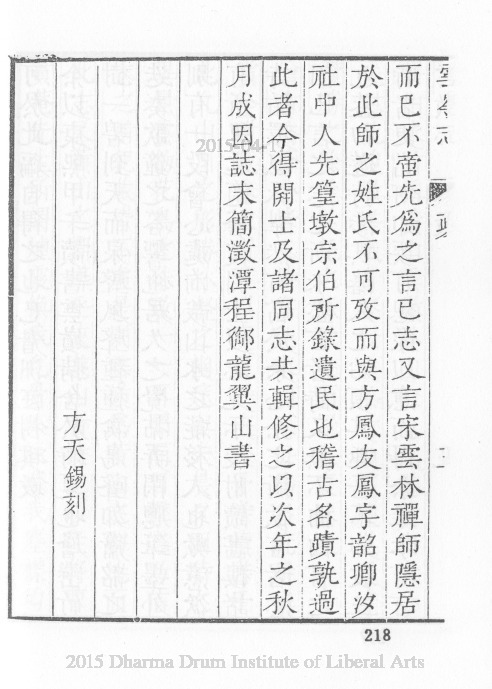 而已不啻先為之言已志又言宋雲林禪師隱居
於此師之姓氏不可攷而與方鳳友鳳字韶卿汐
社中人先篁墩宗伯所錄遺民也稽古名蹟孰過
此者今得開士及諸同志共輯修之以次年之秋
月成因誌末簡澂潭程御龍翼山書
方天錫刻
218
2015-04-17
2015 Dharma Drum Institute of Liberal Arts